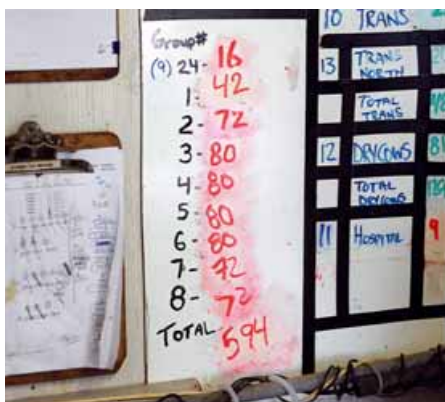 Group#
(9) 24- 16
1- 42
2- 72
3- 80
4- 80
5- 80
6- 80
7- 72
8- 72
TOTAL 594
10 TRANS
13 TRANS NORTH
TOTAL TRANS
12 DRYCOWS 81
TOTAL DRYCOWS
11 HOSPITAL 9